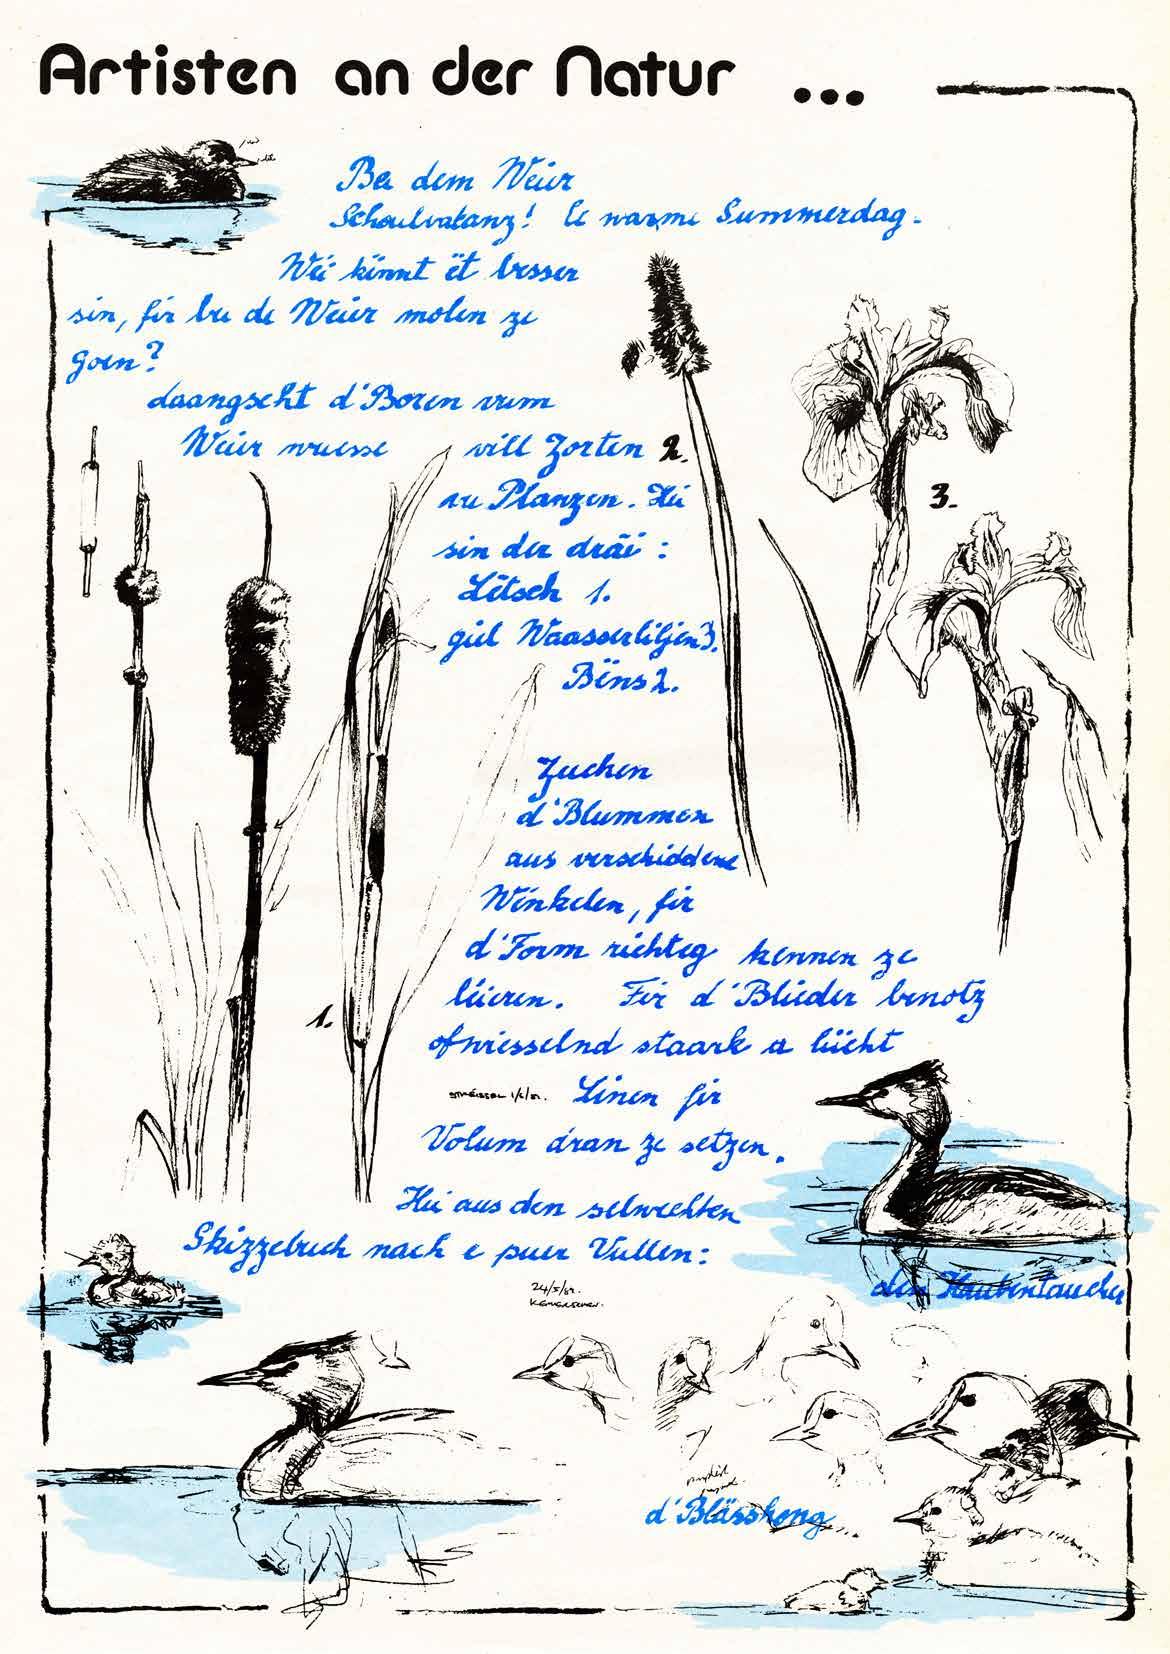 Artisten an der Natur ...
Bei dem Weier
Schoulvakanz! E warme Summerdag.
Wéi kinnt ët besser
sin, fir bei de Weier molen ze
goen?
daangscht d'Boren vum
Weier wuesse vill Zorten 2.
vu Planzen. Hei
sin der dräi :
Lëtsch 1.
giel Waasserliljen 3.
Bëns 2.
3.
Zuchen
d'Blummen
aus verschiddene
Winkelen, fir
d'Form richteg kennen ze
léieren. Fir d'Blieder benotz
1.
ofwiesselnd staark a liicht
1/6/81. Linen fir
Volum dran ze setzen.
Hei aus den selwechten
Skizzebuch nach e puer Vullen:
den Haubentaucher
24/5/81.
d'Blässhong